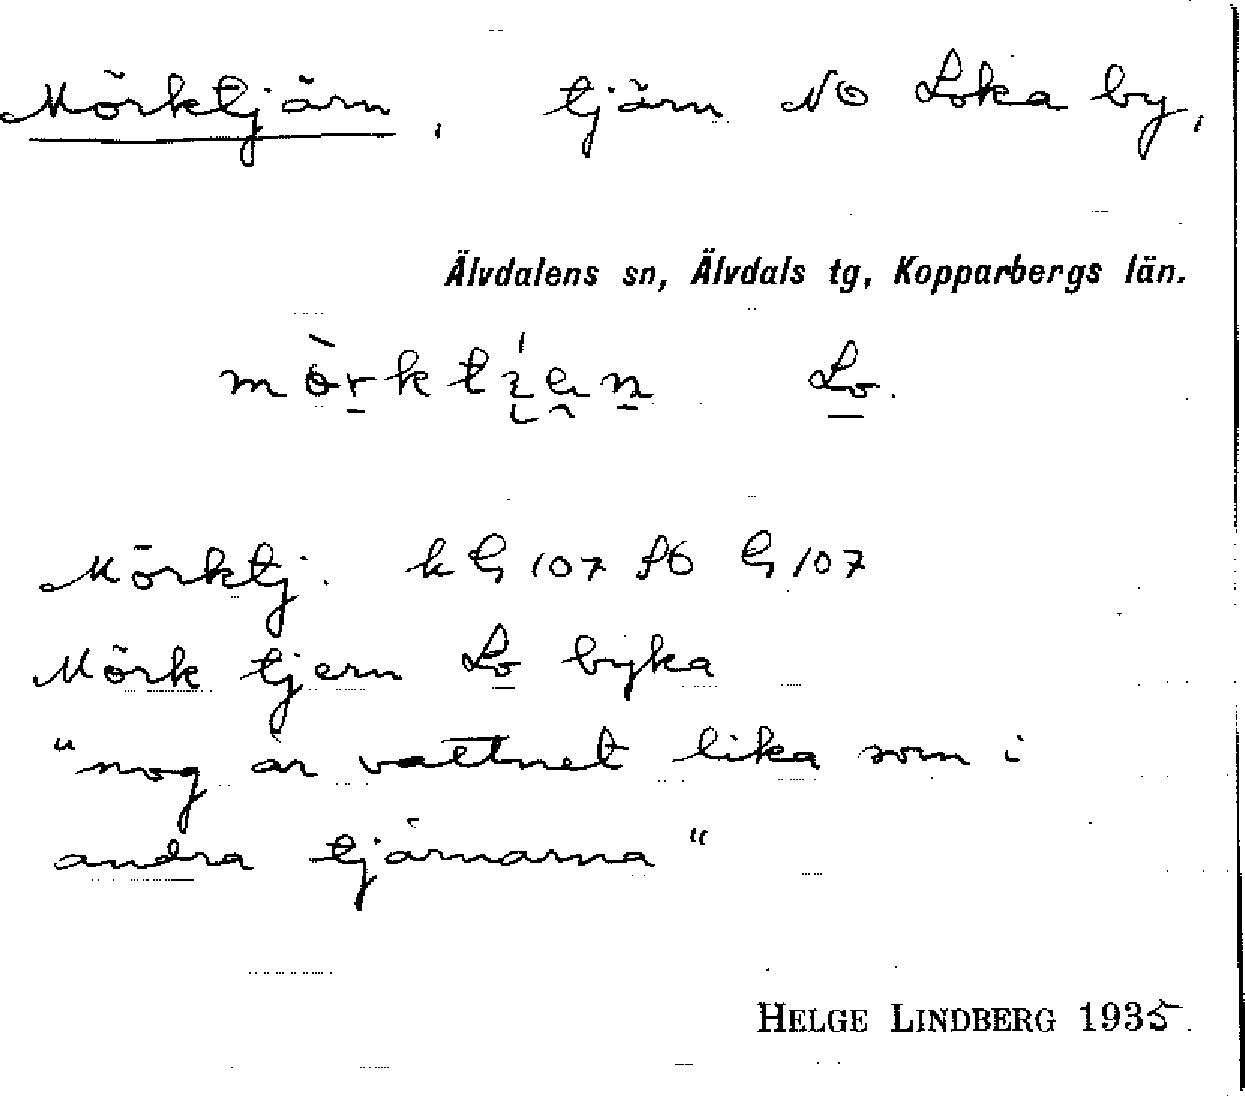 Mörktjärn, tjärn NO Loka by,
Älvdalens sn, Älvdals tg, Kopparbergs län.
Lo.
Mörktj. k G 107 fb G 107
Mörk tjern Lo byka
"nog är vattnet lika som i
andra tjärnarna"
HELGE LINDBERG 1935.